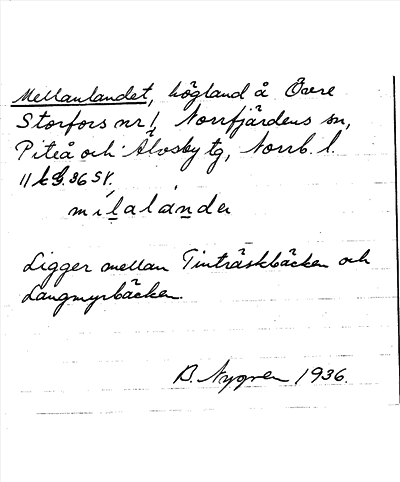 Mellanlandet, högland å Övre
Storfors nr 1, Norrfjärdens sn,
Piteå och Älvsby tg, Norrb. l.
11 36 SV.
mìlalándeɴ
Ligger mellan Tinträskbäcken och
Långmyrbäcken.
B. Nygren 1936.